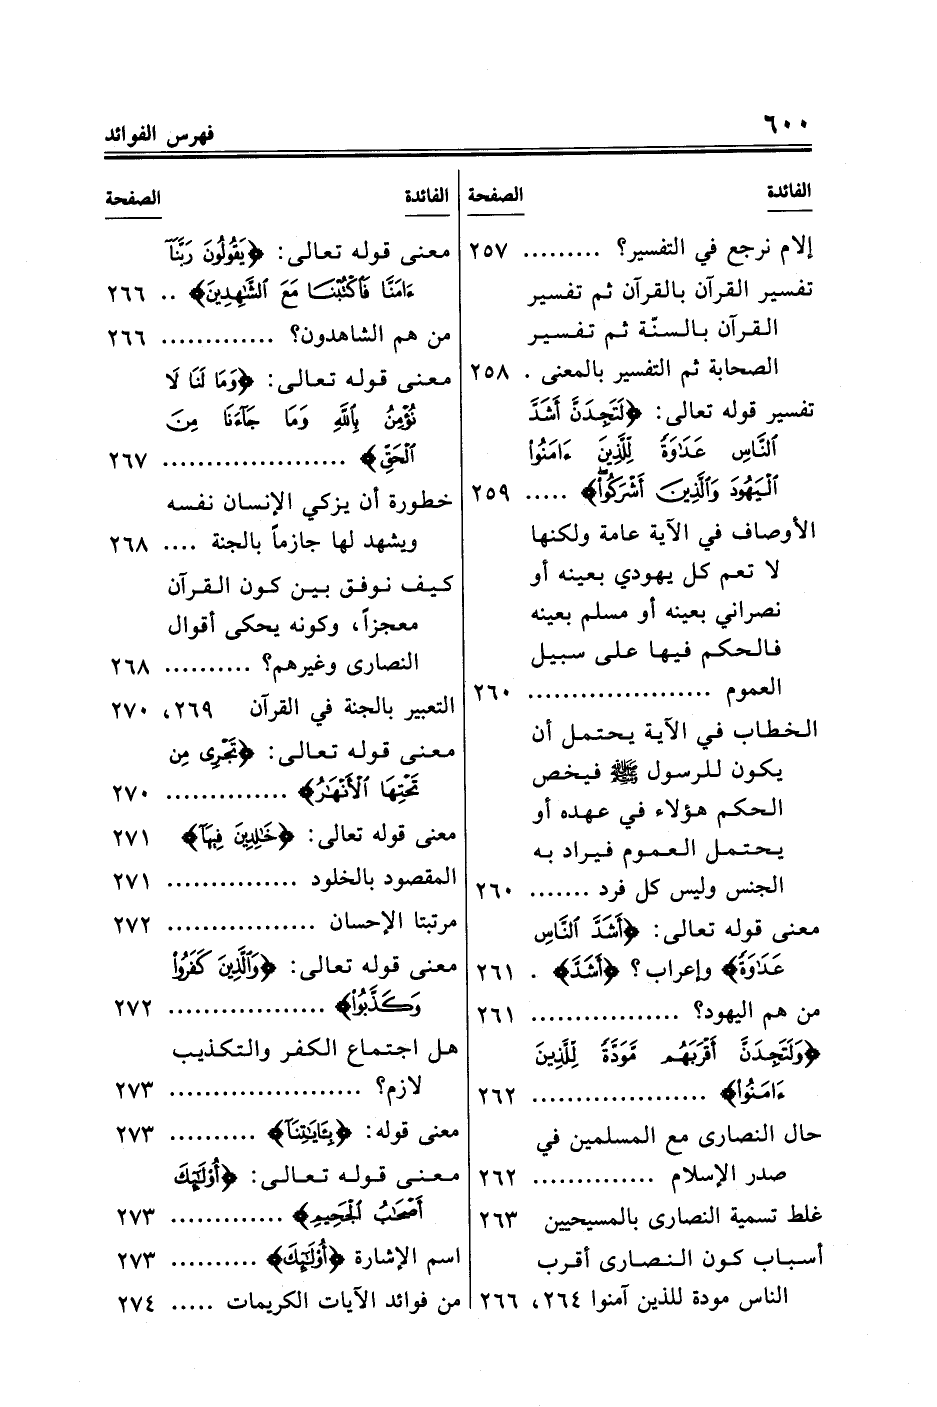 ٦٠٠
فهرس الفوائد
الفائدة
الصفحة
إلام نرجع في التفسير؟ ......... ٢٥٧
تفسير القرآن بالقرآن ثم تفسير
القرآن بالسنّة ثم تفسير
الصحابة ثم التفسير بالمعنى . ٢٥٨
تفسير قوله تعالى: ﴿لَتَجِدَنَّ أَشَدَّ
ٱلنَّاسِ عَدَٰوَةً لِّلَّذِينَ ءَامَنُوا
ٱلْيَهُودَ وَٱلَّذِينَ أَشْرَكُوا۟﴾ ..... ٢٥٩
الأوصاف في الآية عامة ولكنها
لا تعم كل يهودي بعينه أو
نصراني بعينه أو مسلم بعينه
فالحكم فيها على سبيل
العموم ..................... ٢٦٠
الخطاب في الآية يحتمل أن
يكون للرسول ﷺ فيخص
الحكم هؤلاء في عهده أو
يحتمل العموم فيراد به
الجنس وليس كل فرد ....... ٢٦٠
معنى قوله تعالى: ﴿أَشَدَّ ٱلنَّاسِ
عَدَٰوَةً﴾ وإعراب؟ ﴿أَشَدَّ﴾ . ٢٦١
من هم اليهود؟ ................. ٢٦١
﴿وَلَتَجِدَنَّ أَقْرَبَهُم مَّوَدَّةً لِّلَّذِينَ
ءَامَنُوا۟﴾ .................... ٢٦٢
حال النصارى مع المسلمين في
صدر الإسلام .............. ٢٦٢
غلط تسمية النصارى بالمسيحيين ٢٦٣
أسباب كون النصارى أقرب
الناس مودة للذين آمنوا ٢٦٤، ٢٦٦
الفائدة
الصفحة
معنى قوله تعالى: ﴿يَقُولُونَ رَبَّنَآ
ءَامَنَّا فَٱكْتُبْنَا مَعَ ٱلشَّٰهِدِينَ﴾ .. ٢٦٦
من هم الشاهدون؟ ............. ٢٦٦
معنى قوله تعالى: ﴿وَمَا لَنَا لَا
نُؤْمِنُ بِٱللَّهِ وَمَا جَآءَنَا مِنَ
ٱلْحَقِّ﴾ ..................... ٢٦٧
خطورة أن يزكي الإنسان نفسه
ويشهد لها جازماً بالجنة .... ٢٦٨
كيف نوفق بين كون القرآن
معجزاً، وكونه يحكى أقوال
النصارى وغيرهم؟ .......... ٢٦٨
التعبير بالجنة في القرآن ٢٦٩، ٢٧٠
معنى قوله تعالى: ﴿تَجْرِى مِن
تَحْتِهَا ٱلْأَنْهَٰرُ﴾ .............. ٢٧٠
معنى قوله تعالى: ﴿خَٰلِدِينَ فِيهَآ﴾ ٢٧١
المقصود بالخلود ............... ٢٧١
مرتبتا الإحسان ................. ٢٧٢
معنى قوله تعالى: ﴿وَٱلَّذِينَ كَفَرُوا۟
وَكَذَّبُوا۟﴾ .................. ٢٧٢
هل اجتماع الكفر والتكذيب
لازم؟ ...................... ٢٧٣
معنى قوله: ﴿بِـَٔايَٰتِنَآ﴾ .......... ٢٧٣
معنى قوله تعالى: ﴿أُو۟لَٰٓئِكَ
أَصْحَٰبُ ٱلْجَحِيمِ﴾ ............. ٢٧٣
اسم الإشارة ﴿أُو۟لَٰٓئِكَ﴾ .......... ٢٧٣
من فوائد الآيات الكريمات ..... ٢٧٤